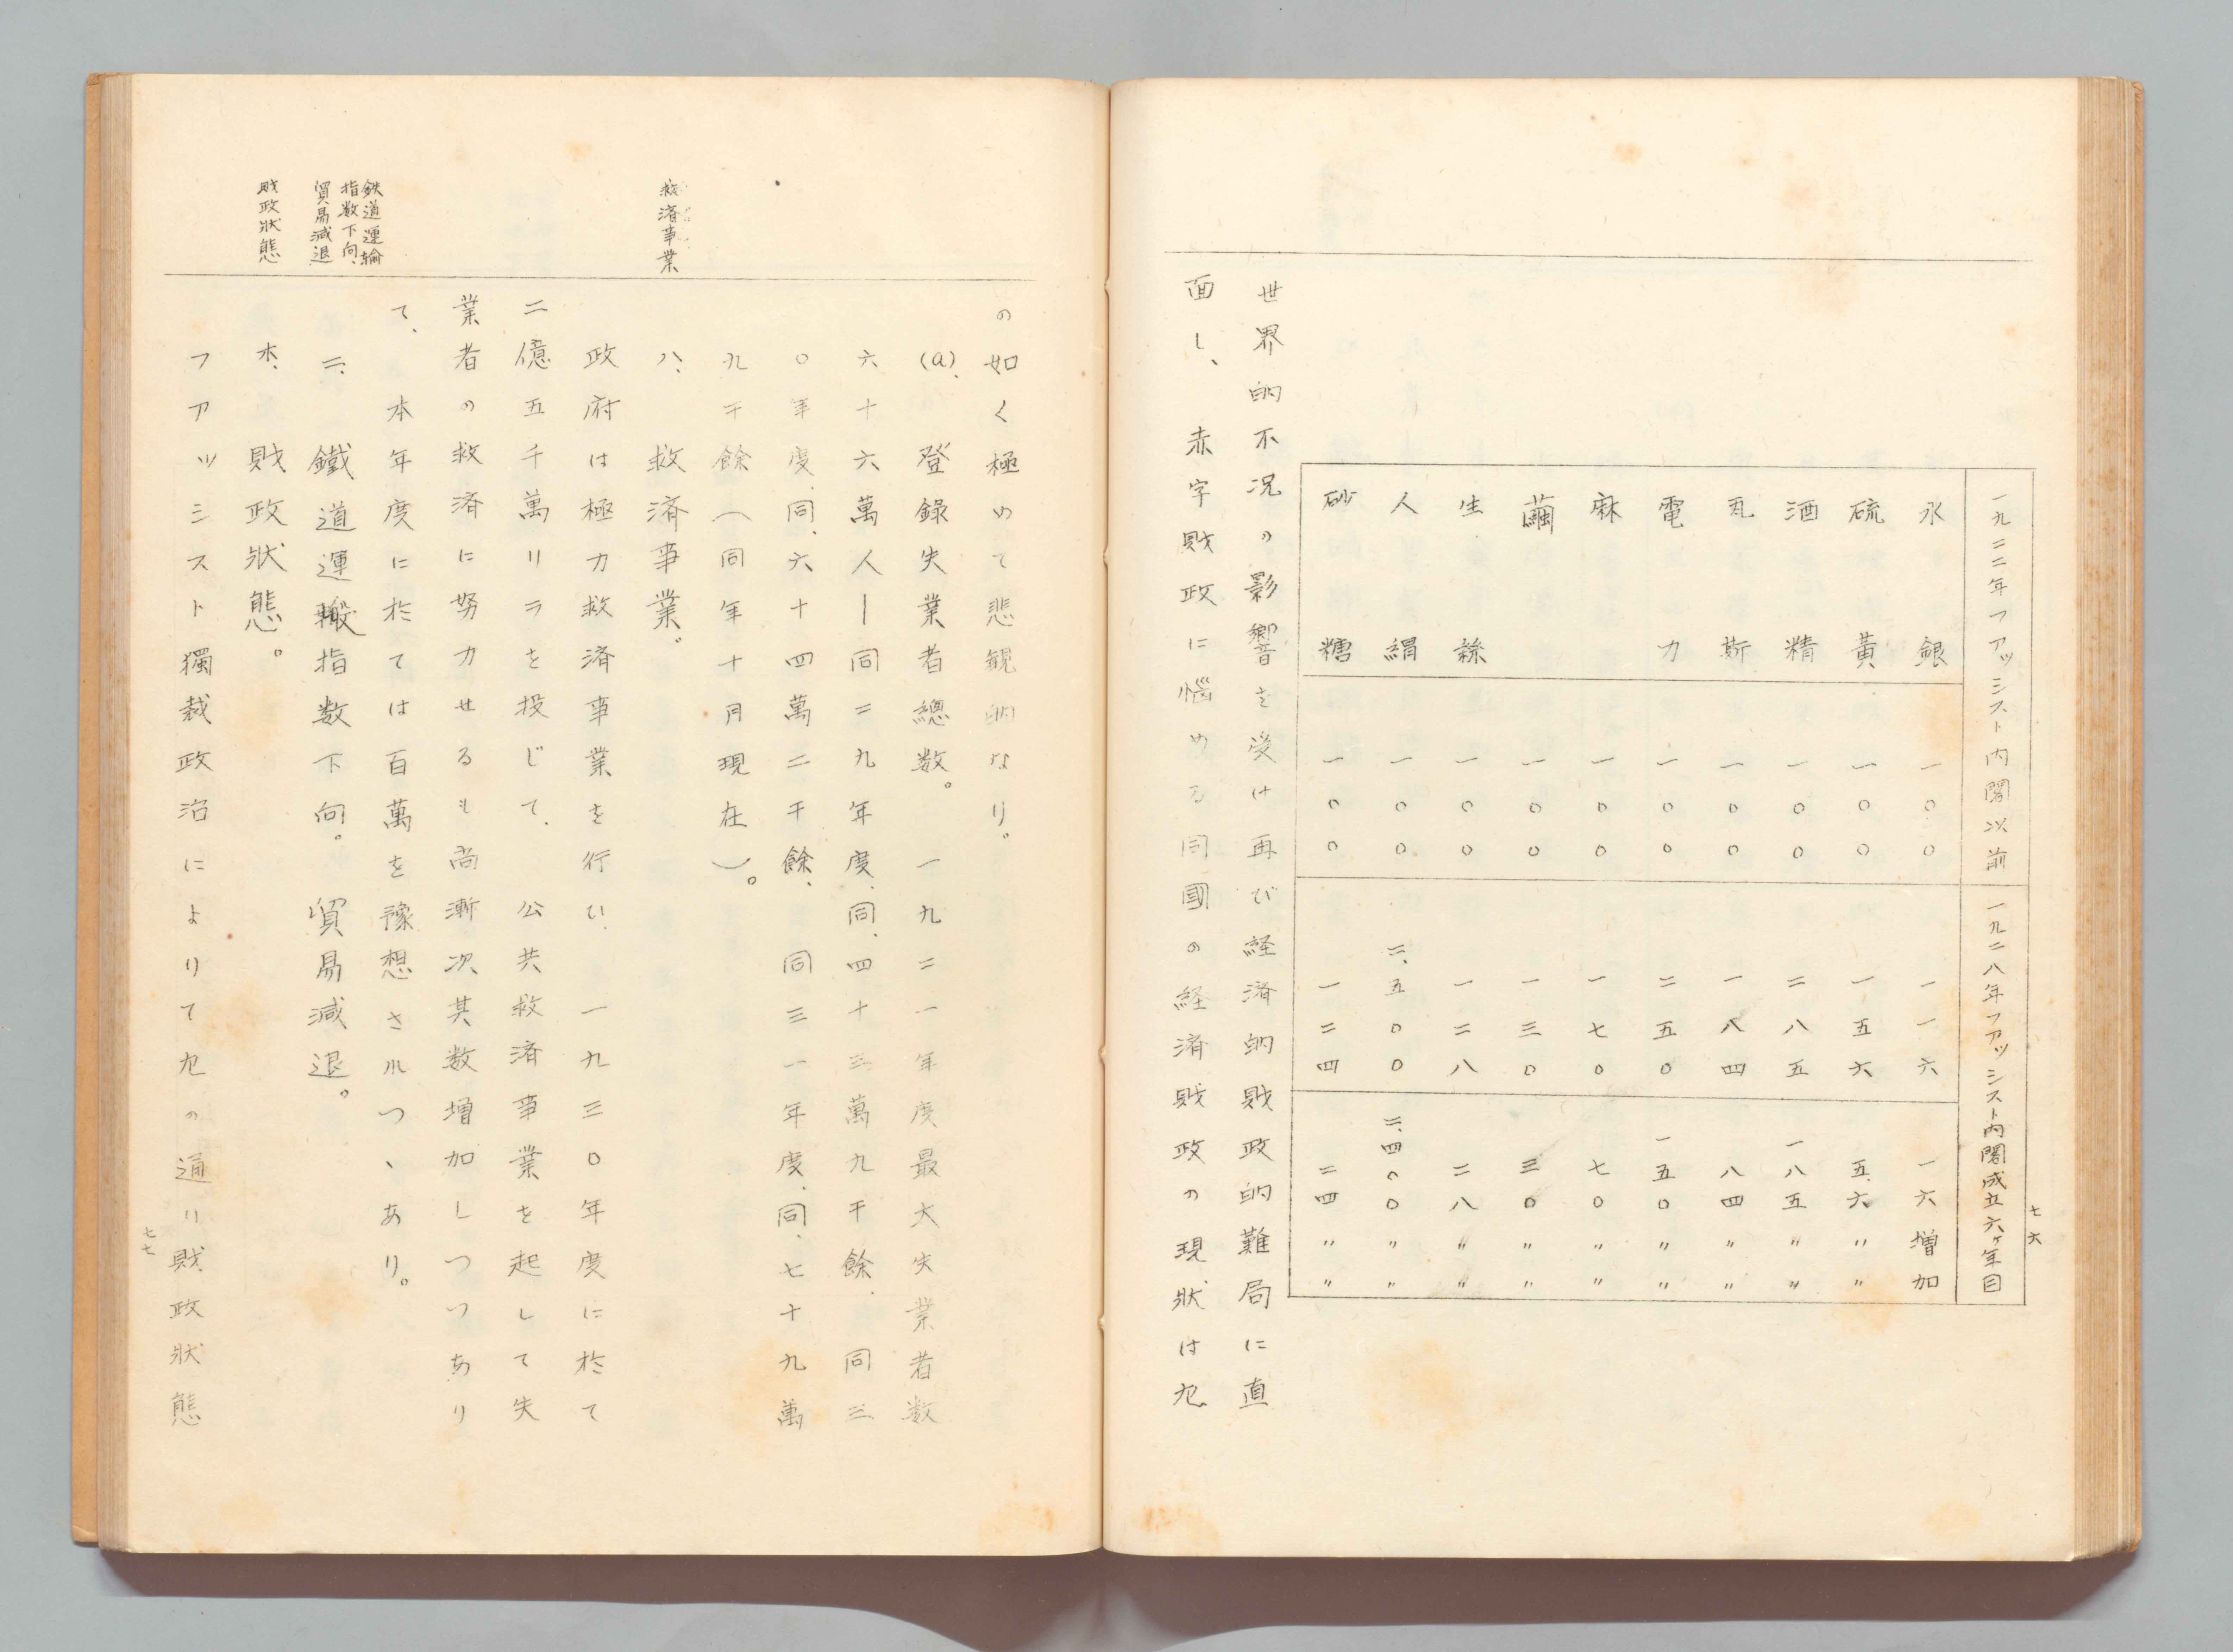 七六
一九二二年ファッシスト内閣以前 一九二八年ファッシスト内閣成立六ヶ年目
水銀 一〇〇 一一六 一六増加
硫黄 一〇〇 一五六 五六〃〃
酒精 一〇〇 二八五 一八五〃〃
瓦斯 一〇〇 一八四 八四〃〃
電力 一〇〇 二五〇 一五〇〃〃
麻 一〇〇 一七〇 七〇〃〃
繭 一〇〇 一三〇 三〇〃〃
生絲 一〇〇 一二八 二八〃〃
人絹 一〇〇 二、五〇〇 二、四〇〇〃〃
砂糖 一〇〇 一二四 二四〃〃
世界的不況の影響を受け再び経済的財政的難局に直
面し、赤字財政に悩める同國の経済財政の現狀は左
の如く極めて悲観的なり。
(a)、登錄失業者總数。 一九二一年度最大失業者数
六十六萬人―同二九年度、同、四十三萬九千餘、同三
〇年度、同、六十四萬二千餘、同三一年度、同、七十九萬
九千餘(同年十月現在)。
救済事業
ハ、救済事業。
政府は極力救済事業を行ひ、一九三〇年度に於て
二億五千萬リラを投じて、公共救済事業を起して失
業者の救済に努力せるも尚漸次其数増加しつつあり
て、本年度に於ては百萬を豫想されつゝあり。
鉄道運輸
指数下向、
貿易減退
ニ、鐵道運輸指数下向。貿易減退。
財政狀態
ホ、財政狀態。
フアツシスト獨裁政治によりて左の通り財政狀態
七七